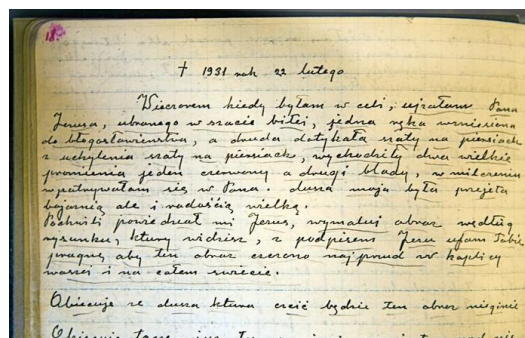 18.
† 1931 rok 22 lutego
Wieczorem kiedy byłam w celi, ujrzałam Pana
Jezusa, ubranego w szacie białej, jedna ręka wzniesiona
do błogosławieństwa, a druga dotykała szaty na piersiach
z uchylenia szaty na piersiach, wychodziły dwa wielkie
promienia jeden czerwony a drugi blady, w milczeniu
wpatrywałam się w Pana. dusza moja była przejęta
bojaźnią ale i radością wielką.
Po chwili powiedział mi Jezus, wymaluj obraz według
rysunku, który widzisz, z podpisem Jezu ufam Tobie
pragnę aby ten obraz czczono najprzód w kaplicy
waszej i na całem świecie.
Obiecuję że dusza która czcić będzie ten obraz nie zginie
Obiecuję także, już tu na ziemi